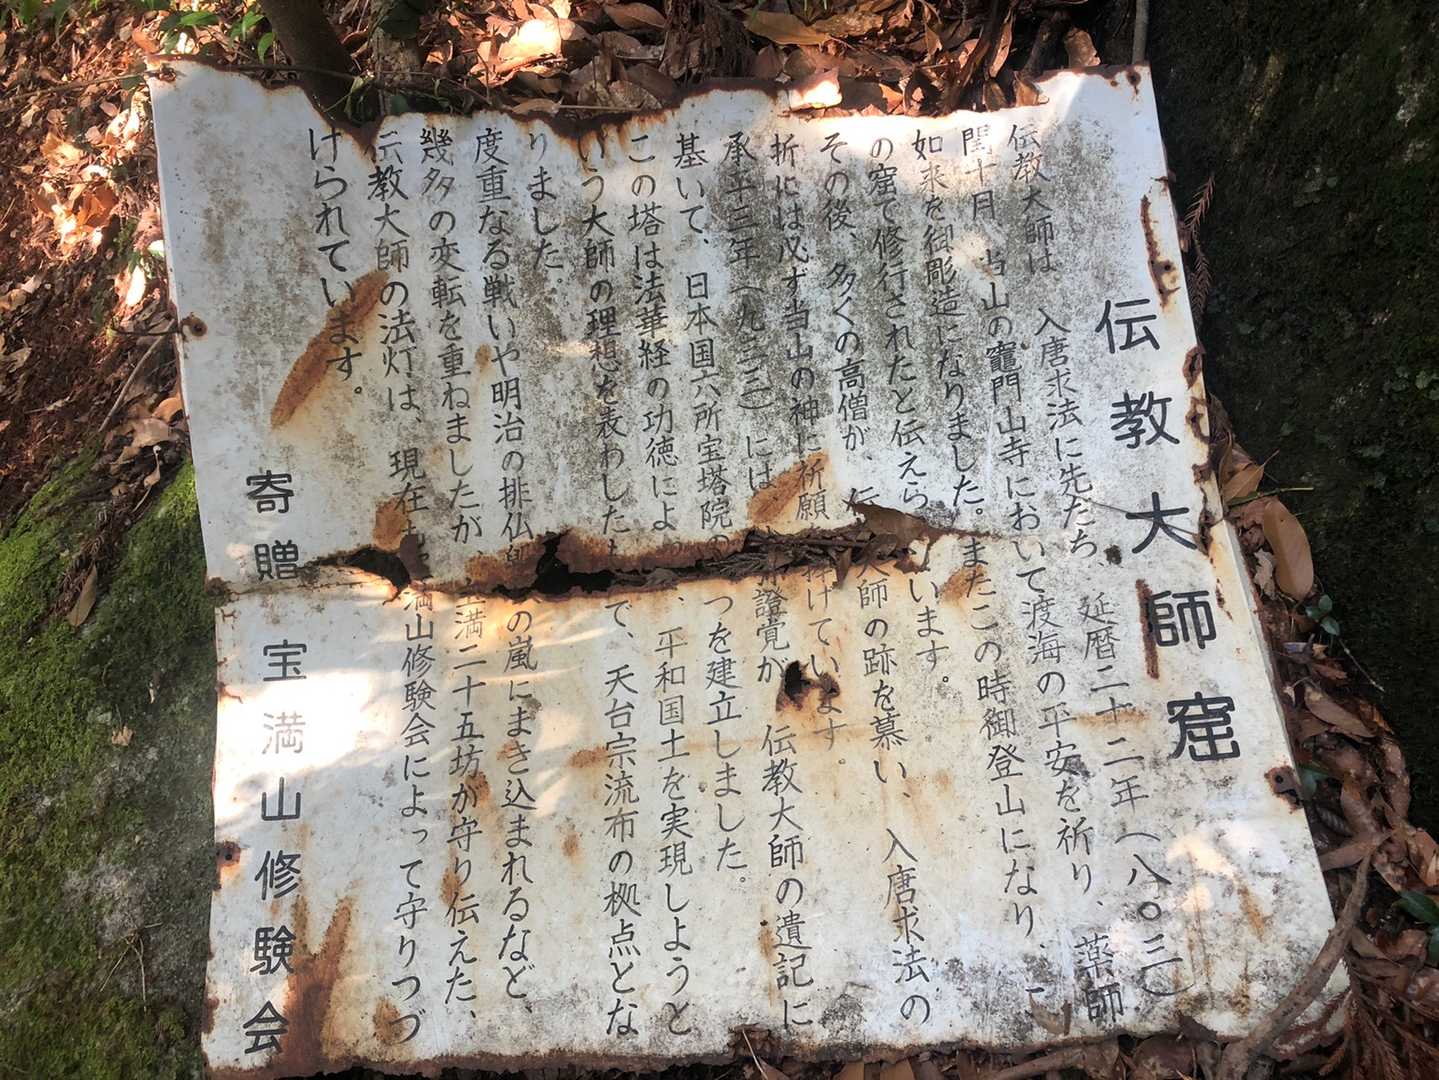 伝教大師窟
伝教大師は 入唐求法に先だち、延暦二十二年(八〇三)
閏十月 当山の竈門山寺において渡海の平安を祈り、薬師
如来を御彫造になりました。またこの時御登山になり、こ
の窟で修行されたと伝えら います。
その後、多くの高僧が 大師の跡を慕い、入唐求法の
折には必ず当山の神に祈願 捧げています。
承平三年(九三三)には 證覚が 伝教大師の遺記に
基いて、日本国六所宝塔院の つを建立しました。
この塔は法華経の功徳によ 、平和国土を実現しようと
いう大師の理想を表わした で、天台宗流布の拠点とな
りました。
度重なる戦いや明治の排仏 の嵐にまき込まれるなど、
幾多の変転を重ねましたが、 満二十五坊が守り伝えた、
伝教大師の法灯は、現在 満山修験会によって守りつづ
けられています。
寄贈 宝満山修験会